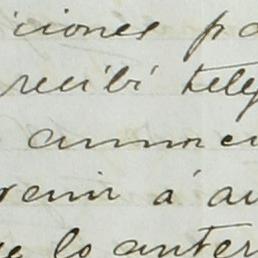 iciones pa
recibi tele
anunci
venir á au
ue lo anter